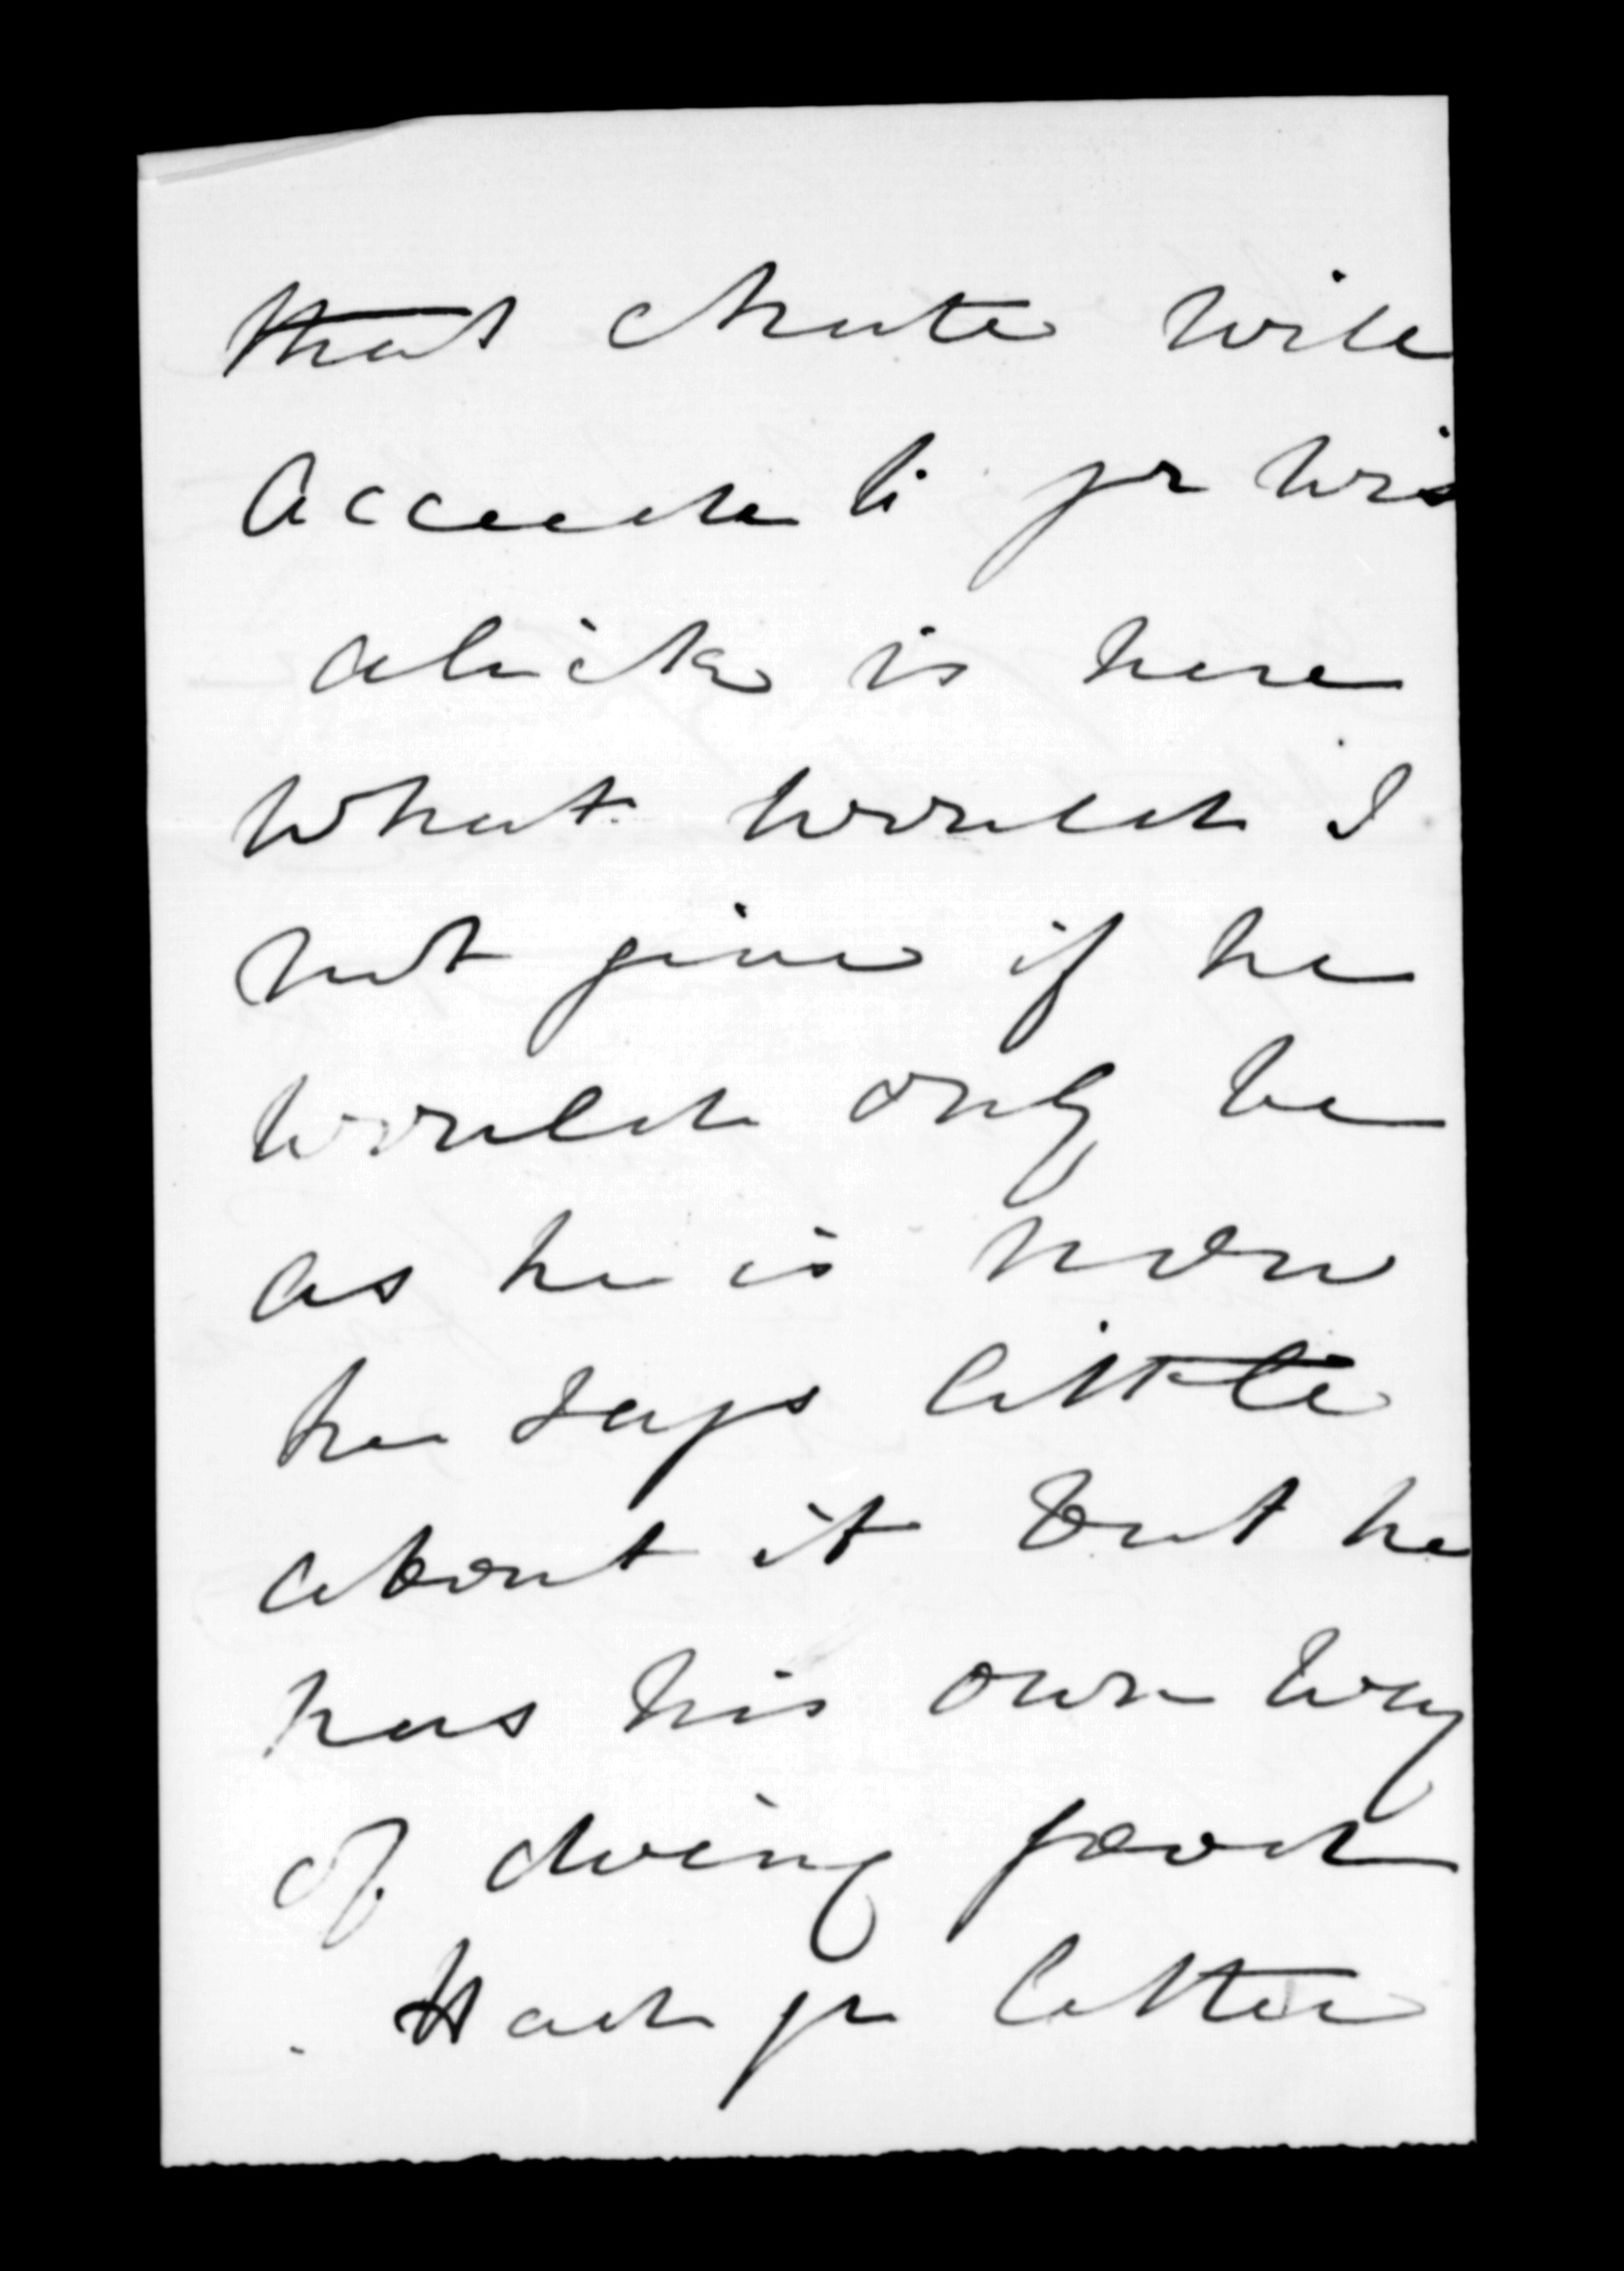 that Chute will
accede to yr wis
Alick is here
What would I
not give if he
would only be
as he is now
he says little
about it but he
has his own way
of doing good
Had yr letter